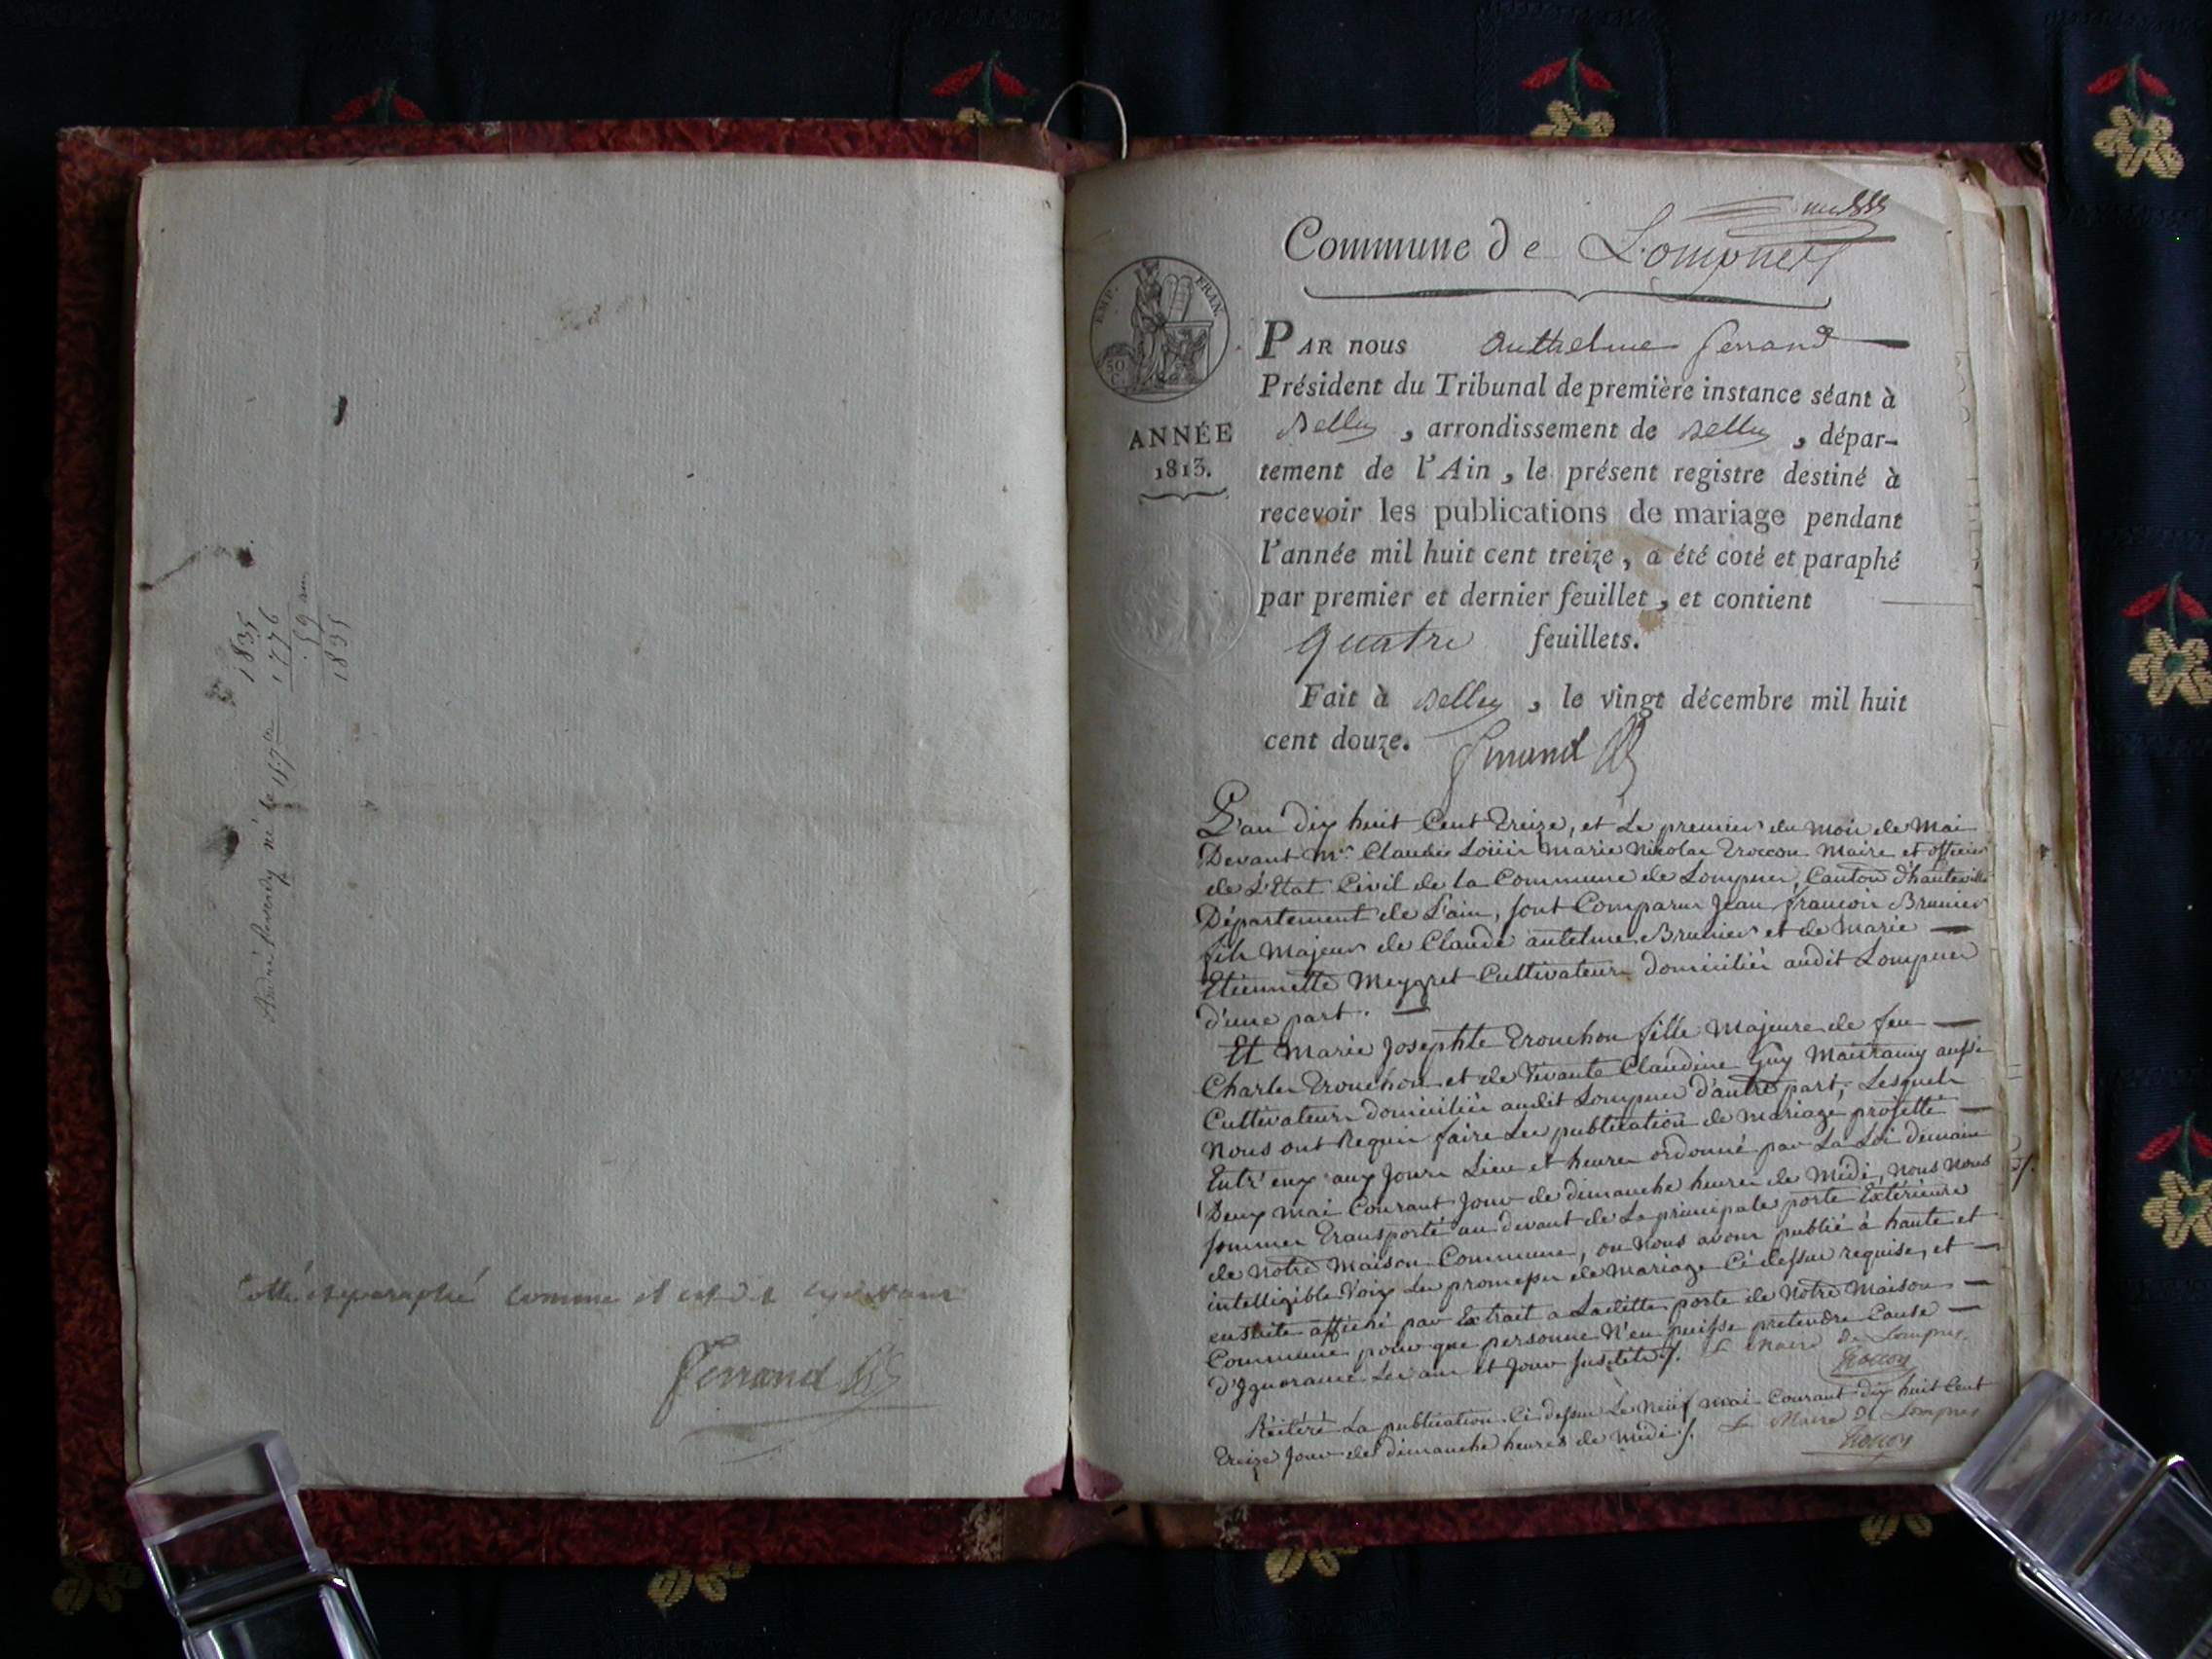 1835
1776
59 ans
1835
André né le 15 7bre
comme il est dit
Ferrand
Commune de Lompnes
EMP. FRAN.
50 C.
PAR nous Anthelme Ferrand
Président du Tribunal de première instance séant à
ANNÉE
1813.
Belley, arrondissement de Belley, dépar-
tement de l'Ain, le présent registre destiné à
recevoir les publications de mariage pendant
l'année mil huit cent treize, a été coté et paraphé
par premier et dernier feuillet, et contient
quatre feuillets.
Fait à Belley, le vingt décembre mil huit
cent douze. Ferrand
L'an dix huit Cent Treize, et Le premier du mois de Mai
Devant Mr. Claude Loüis Marie Nicolas Troccon Maire et officier
de L'Etat Civil de la Commune de Lompnes, Canton d'hauteville
Département de L'ain, sont Comparus Jean francois Brunier
fils Majeur de Claude antelme Brunier et de Marie
Etiennette Meygret Cultivateurs domiciliés audit Lompnes
d'une part.
Et Marie Josephte Trouchon fille Majeure de feu
Charles Trouchon et de Vivante Claudine Guy aussi
Cultivateurs domiciliés audit Lompnes d'autre part, Lesquels
Nous ont Requis faire Les publication de Mariage projetté
Entr'eux aux Jours Lieu et heures ordonné par La Loi demain
Deux Mai Courant Jour de dimanche heures de Midi, nous nous
sommes Transporté au devant de La principale porte Extérieure
de Notre Maison Commune, ou Nous avons publié à haute et
intelligible Voix Les promesses de Mariage Ci dessus requise, et
ensuite affiché par Extrait a Laditte porte de Notre Maison
Commune pour que personne N'en puisse pretendre Cause
d'Ignorance Les an et Jour susdits. Le Maire de Lompnes
Troccon
Réitéré La publication Ci dessus Le Neuf mai Courant dix huit Cent
Treize Jour de dimanche heures de Midi. Le Maire de Lompnes
Troccon